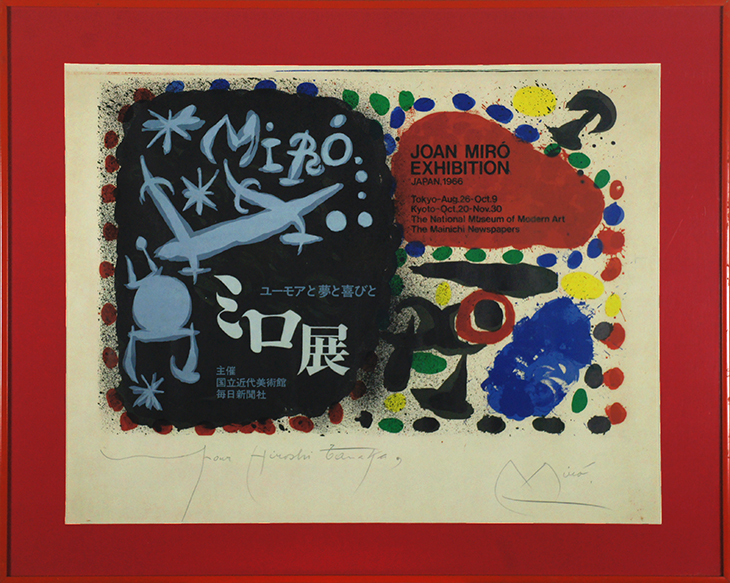 MIRÓ
ユーモアと夢と喜びと
ミロ展
主催
国立近代美術館
毎日新聞社
JOAN MIRÓ
EXHIBITION
JAPAN.1966
Tokyo-Aug.26-Oct.9
Kyoto-Oct.20-Nov.30
The National Museum of Modern Art
The Mainichi Newspapers
pour Hiroshi Tanaka,
Miró.